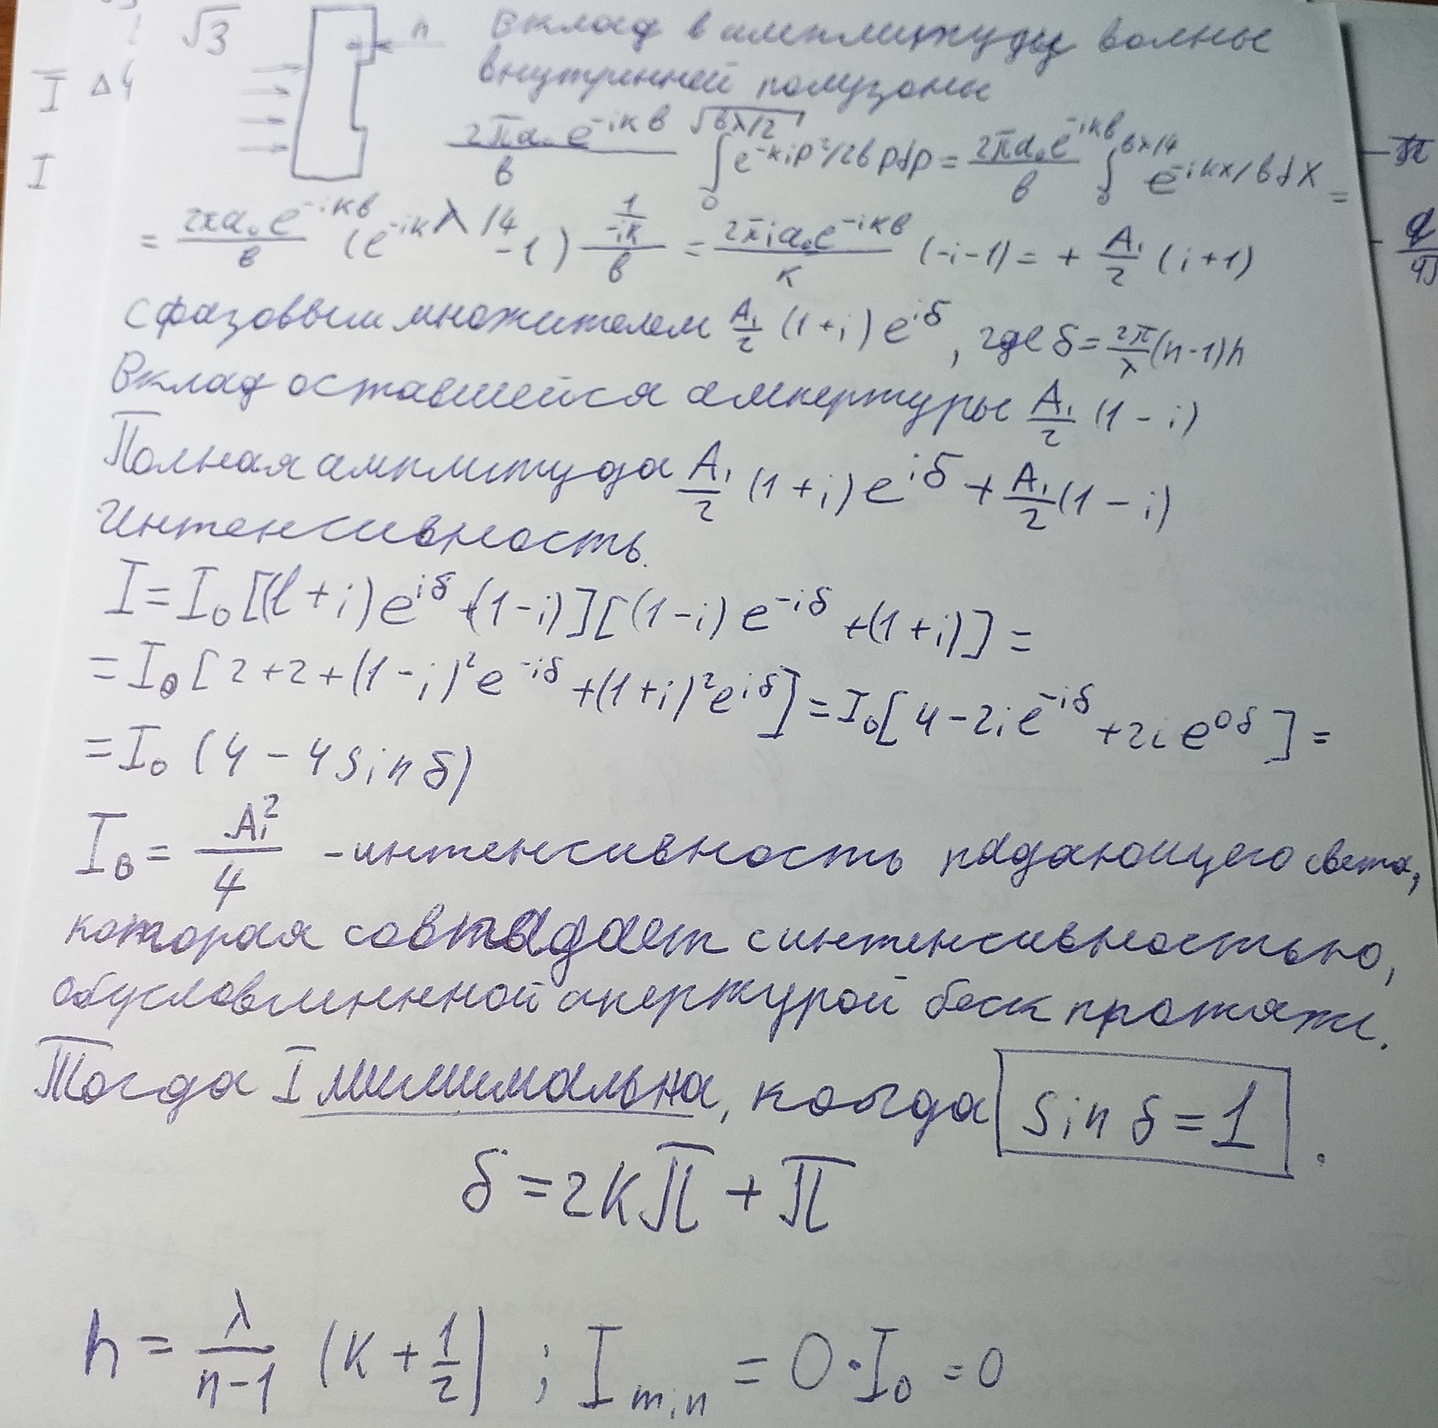 √3
h
Вклад в амплитуду волны
внутренней полузоны
I Δ4
I
2πa₀e^{-ikв}/в ∫₀^{√(вλ/2)} e^{-kiρ²/2в}ρdρ = 2πa₀e^{-ikв}/в ∫₀^{вλ/4} e^{-ikx/в}dx =
= 2πa₀e^{-ikв}/в (e^{-ikλ/4} - 1) 1/(-ik/в) = 2πia₀e^{-ikв}/k (-i-1) = + A₁/2 (i+1)
С фазовым множителем A₁/2 (1+i) e^{iδ}, где δ = 2π/λ (n-1)h
Вклад оставшейся апертуры A₁/2 (1-i)
Полная амплитуда A₁/2 (1+i) e^{iδ} + A₁/2 (1-i)
Интенсивность.
I = I₀[(1+i)e^{iδ} + (1-i)][(1-i)e^{-iδ} + (1+i)] =
= I₀[2+2+(1-i)²e^{-iδ} + (1+i)²e^{iδ}] = I₀[4-2ie^{-iδ} + 2ie^{0δ}] =
= I₀ (4 - 4sinδ)
I_в = A₁²/4 - интенсивность падающего света,
которая совпадает с интенсивностью,
обусловленной апертурой беск протяж.
Тогда I минимальна, когда sinδ = 1.
δ = 2Kπ + π
h = λ/(n-1) (K + 1/2) ; I_min = 0·I₀ = 0